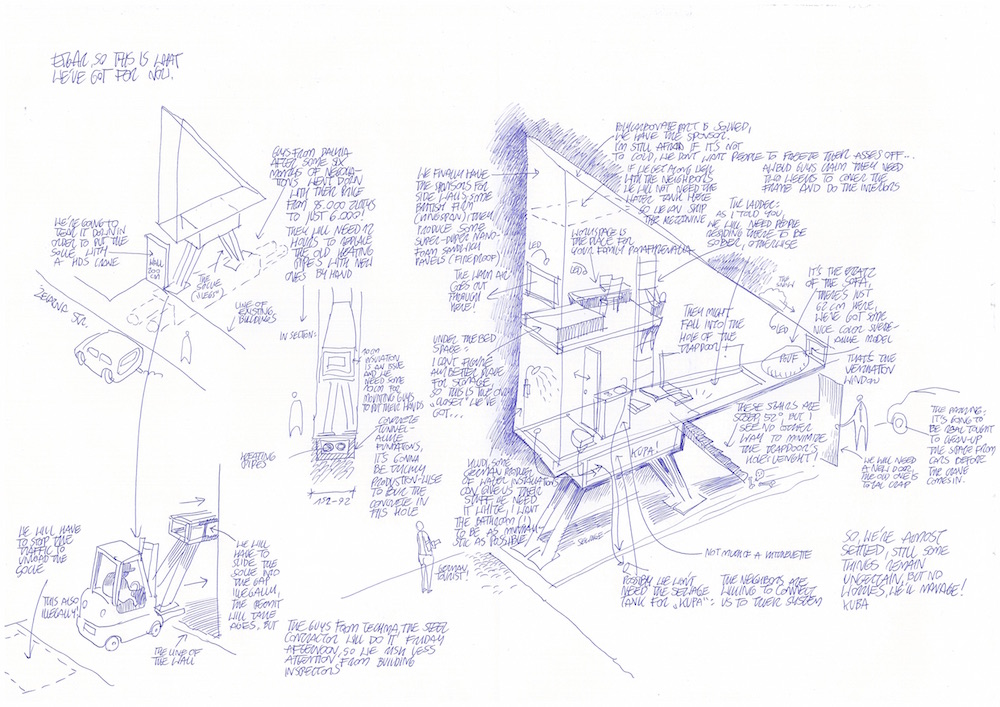 ETGAR, SO THIS IS WHAT
WE'VE GOT FOR NOW.
GUYS FROM DALKIA
AFTER SOME SIX
MONTHS OF NEGOTIA-
TIONS WENT DOWN
WITH THEIR PRICE
FROM 95.000 ZLOTYS
TO JUST 6.000!
THEY WILL NEED 12
HOURS TO REPLACE
THE OLD HEATING
PIPES WITH NEW
ONES BY HAND
WE'RE GOING TO
TEAR IT DOWN IN
ORDER TO PUT THE
SOCLE WITH
A HDS CRANE
WALL
THE
SOCLE
("LEGS")
ŻELAZNA STR.
LINE OF
EXISTING
BUILDINGS
IN SECTION:
INSULATION
IS AN ISSUE
AND WE
NEED SOME
FOR
MOUNTING GUYS
TO PUT THEIR HANDS
CONCRETE
TUNNEL-
ALIKE
FUNDATIONS,
IT'S GONNA
BE TRICKY
PRODUCTION-WISE
TO POUR THE
CONCRETE IN
THIS HOLE
HEATING
PIPES
152-92
WE FINALLY HAVE
THE SPONSORS FOR
SIDE WALLS: SOME
BRITISH FIRM
(KINGSPAN); THEY
PRODUCE SOME
SUPER-DUPER NANO-
FOAM SANDWICH
PANELS (FIREPROOF)
THE WARM AIR
GOES OUT
THROUGH
HERE!
UNDER THE BED
SPACE:
I CAN'T FIGURE
ANY BETTER PLACE
FOR STORAGE
SO THIS IS THE ONLY
"CLOSET" WE'VE
GOT...
KLUDI, SOME
GERMAN PRODUCER
OF WATER INSTALLATIONS
CAN GIVE US THEIR
STUFF. WE NEED
IT WHITE, I WANT
THE BATHROOM (!)
TO BE AS MINIMALI-
STIC AS POSSIBLE
POLYCARBONATE PART IS SOLVED,
WE HAVE THE SPONSOR.
I'M STILL AFRAID IF IT'S NOT
TO COLD, WE DON'T WANT PEOPLE TO FREEZE THEIR ASSES OFF...
IF WE GET ALONG WELL
WITH THE NEIGHBORS
WE WILL NOT NEED THE
WATER TANK HERE
SO WE CAN SKIP
THE MEZZANINE
GUYS CLAIM THEY NEED
TWO WEEKS TO COVER THE
FRAME AND DO THE INTERIORS
THE LADDER:
AS I TOLD YOU,
WE WILL NEED PEOPLE
RESIDING THERE TO BE
SOBER, OTHERWISE
THEY MIGHT
FALL INTO THE
HOLE OF THE
TRAPDOOR
WORKSPACE IS
THE PLACE FOR
YOUR FAMILY PARAPHERNALIA
LED
LEDs
LED
IT'S THE ERSATZ
OF THE SOFA,
THERE'S JUST
62 CM HERE,
WE'VE GOT SOME
NICE COLOR SUEDE-
ALIKE MODEL
POUF
THAT'S THE
VENTILATION
WINDOW
THESE STAIRS ARE
STEEP 52° BUT I
SEE NO OTHER
WAY TO MINIMIZE
THE TRAPDOOR'S
HOLE LENGHT!
KUPA!
SEWAGE
WE WILL NEED
A NEW DOOR,
THE OLD ONE IS
TOTAL CRAP
THE PARKING:
IT'S GOING TO
BE REAL TOUGHT
TO CLEAN-UP
THE SPACE FROM
CARS BEFORE
THE CRANE
COMES IN.
NOT MUCH OF A KITCHENETTE
POSSIBLY WE WON'T
NEED THE SEWAGE
TANK FOR "KUPA":
THE NEIGHBORS ARE
WILLING TO CONNECT
US TO THEIR SYSTEM
SO, WE'RE ALMOST
SETTLED, STILL SOME
THINGS REMAIN
UNCERTAIN BUT NO
WORRIES, WE'LL MANAGE!
KUBA
GERMAN
TOURIST!
WE WILL HAVE
TO STOP THE
TRAFFIC TO
UNLOAD THE
SOCLE
THIS ALSO
ILLEGALLY
WE WILL
HAVE TO
SLIDE THE
SOCLE INTO
THE GAP
ILLEGALLY,
THE PERMIT
WILL TAKE
AGES, BUT
THE GUYS FROM TECHMA, THE STEEL
CONTRACTOR WILL DO IT FRIDAY
AFTERNOON, SO WE RISK LESS
ATTENTION FROM BUILDING
INSPECTORS
THE LINE OF
THE WALL